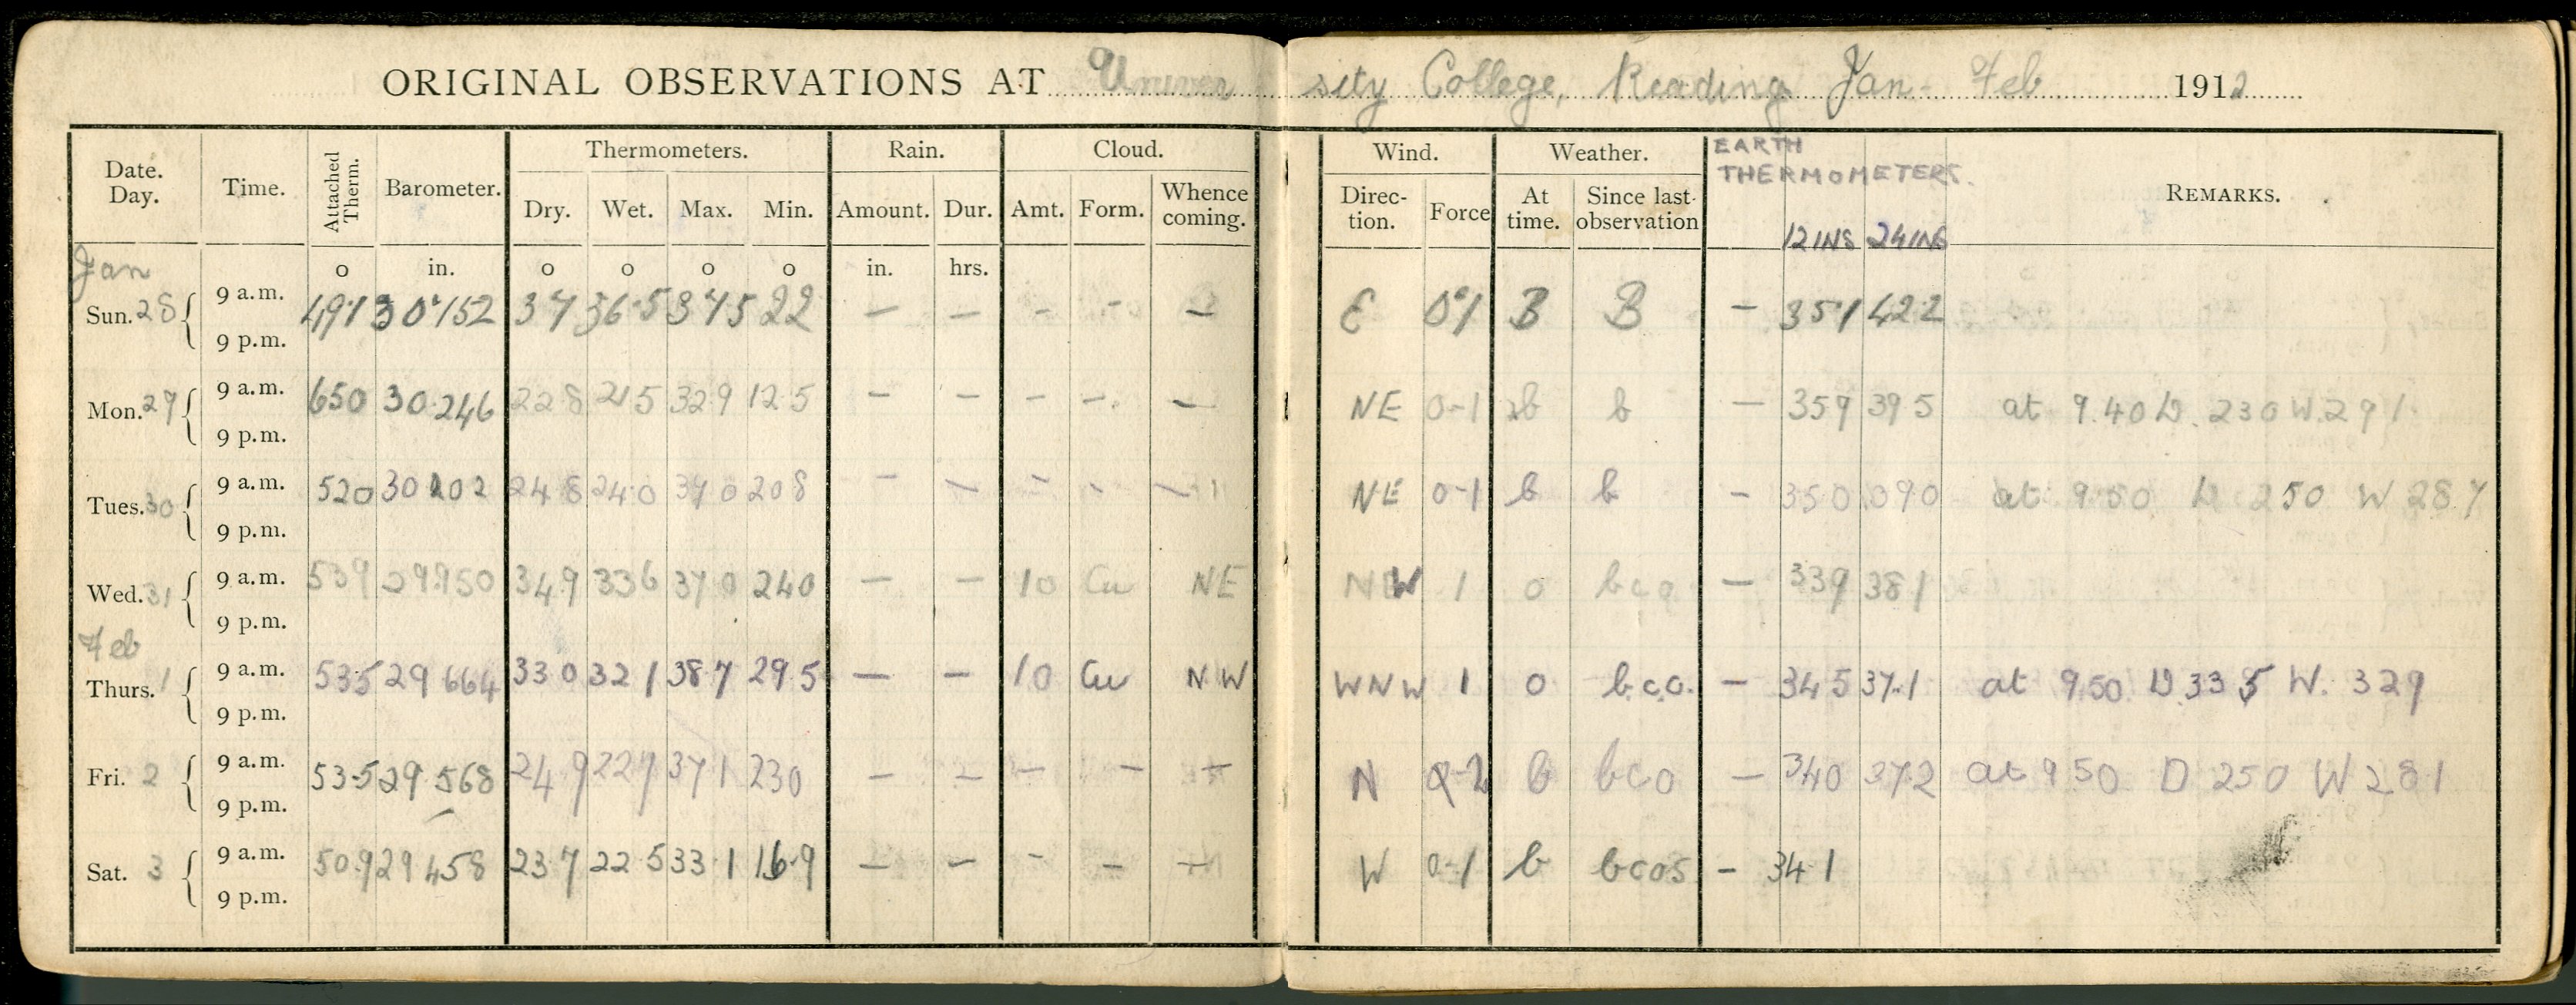 ORIGINAL OBSERVATIONS AT University College, Reading Jan - Feb 1912
Date. Day. Time. Attached Therm. Barometer. Thermometers. Rain. Cloud. Wind. Weather. EARTH THERMOMETERS. REMARKS.
Dry. Wet. Max. Min. Amount. Dur. Amt. Form. Whence coming. Direc- tion. Force At time. Since last observation 12 INS 24 INS
Jan o in. o o o o in. hrs.
Sun. 28 9 a.m. 49.1 30.152 37 36.5 37.5 22 — — - - — E 0.1 B B — 351 422
9 p.m.
Mon. 29 9 a.m. 650 30.246 22.8 21.5 32.9 12.5 — — — — — NE 0-1 b b — 359 39 5 at 9.40 D. 230 W. 291
9 p.m.
Tues. 30 9 a.m. 520 30 202 24 8 24.0 37 0 20 8 — — — - — NE 0-1 b b — 350 090 at 9.50 D 250 W 287
9 p.m.
Wed. 31 9 a.m. 539 29.950 34.9 336 37 0 240 — — 10 Cu NE NW 1 0 bco — 339 381
9 p.m.
Feb
Thurs. 1 9 a.m. 53.5 29 664 33 0 32 1 38.7 29.5 — — 10 Cu NW WNW 1 0 b.c.o. — 345 37.1 at 9.50 D 33 5 W. 329
9 p.m.
Fri. 2 9 a.m. 53.5 29 568 24 9 227 37 1 230 — — — — — N 0-2 b bco — 340 372 at 9 50 D 250 W 281
9 p.m.
Sat. 3 9 a.m. 50.9 29 458 23 7 22 5 33 1 16.9 — — - — — W 0-1 b bcos — 34 1
9 p.m.